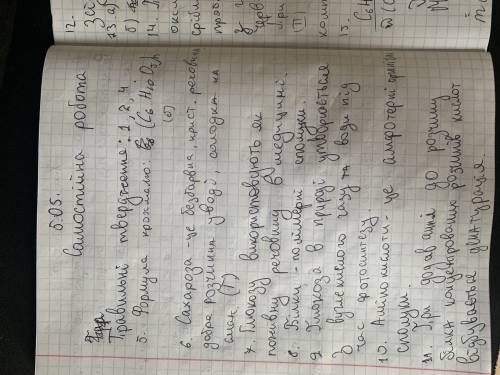 5.05.
Самостійна робота
Правильні твердження: 1, 2, 4
5. Формула крохмалю: (C6H10O5)n
(б)
6. Сахароза - це безбарвна, крист. речовина
добре розчинна у воді, солодка на
смак (Г)
7. Глюкозу використовують як
поживну речовину в медицині.
8. Білки - полімерні сполуки.
9 Глюкоза в природі утворюється
з вуглекислого газу та води під
час фотосинтезу
10. Амінокислоти - це амфотерні органічні
сполуки.
11. При додаванні до розчину
білка концентрованих розчинів кислот
відбувається денатурація
12.
14.
13. C6H